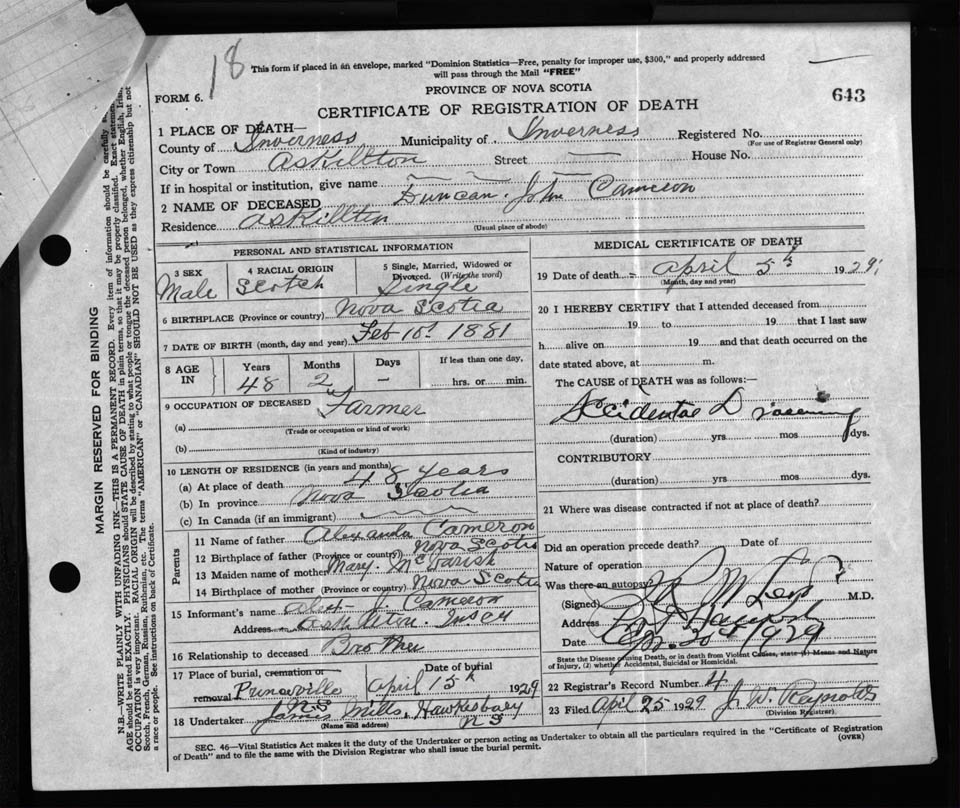 18
This form if placed in an envelope, marked "Dominion Statistics—Free, penalty for improper use, $300," and properly addressed
will pass through the Mail "FREE"
FORM 6.
PROVINCE OF NOVA SCOTIA
643
CERTIFICATE OF REGISTRATION OF DEATH
1 PLACE OF DEATH—
County of Inverness Municipality of Inverness Registered No.
(For use of Registrar General only)
City or Town Askillton Street — House No.
If in hospital or institution, give name — — —
2 NAME OF DECEASED Duncan John Cameron
Residence Askillton
(Usual place of abode)
PERSONAL AND STATISTICAL INFORMATION
3 SEX Male
4 RACIAL ORIGIN Scotch
5 Single, Married, Widowed or Divorced. (Write the word) Single
6 BIRTHPLACE (Province or country) Nova Scotia
7 DATE OF BIRTH (month, day and year) Feb 1881
8 AGE IN Years 48 Months 2 Days — If less than one day, hrs. or min.
9 OCCUPATION OF DECEASED Farmer
(a)
(Trade or occupation or kind of work)
(b)
(Kind of industry)
10 LENGTH OF RESIDENCE (in years and months)
(a) At place of death 48 years
(b) In province Nova Scotia
(c) In Canada (if an immigrant)
Parents
11 Name of father Alexander Cameron
12 Birthplace of father (Province or country) Nova Scotia
13 Maiden name of mother Mary
14 Birthplace of mother (Province or country) Nova Scotia
15 Informant's name Cameron
Address Askillton
16 Relationship to deceased Brother
17 Place of burial, cremation or removal Princeville N S Date of burial April 15th 1929
18 Undertaker James Mills, Hawkesbury N S
(Name and address)
MEDICAL CERTIFICATE OF DEATH
19 Date of death April 5th 1929
(Month, day and year)
20 I HEREBY CERTIFY that I attended deceased from
19 to 19 that I last saw
h alive on 19 and that death occurred on the
date stated above, at m.
The CAUSE of DEATH was as follows:—
Accidental Drowning
(duration) yrs mos dys.
CONTRIBUTORY
(duration) yrs mos dys.
21 Where was disease contracted if not at place of death?
Did an operation precede death? Date of
Nature of operation
Was there an autopsy?
(Signed) M.D.
Address
Date 1929
State the Disease causing Death, or in death from Violent Causes, state (1) Means and Nature
of Injury, (2) whether Accidental, Suicidal or Homicidal.
22 Registrar's Record Number 4
23 Filed Apl 25 1929 J. W. Reynolds
(Division Registrar)
SEC. 46—Vital Statistics Act makes it the duty of the Undertaker or person acting as Undertaker to obtain all the particulars required in the "Certificate of Registration
of Death" and to file the same with the Division Registrar who shall issue the burial permit.
(OVER)
MARGIN RESERVED FOR BINDING
N.B.—WRITE PLAINLY WITH UNFADING INK—THIS IS A PERMANENT RECORD. Every item of information should be carefully
AGE should be stated EXACTLY. PHYSICIANS should STATE CAUSE OF DEATH in plain terms, so that it may be properly classified. Exact statement
OCCUPATION is very important. RACIAL ORIGIN will be described by stating to what people or tongue the deceased person belonged, whether English, Irish,
Scotch, French, German, Russian, Ruthenian, etc. The terms "AMERICAN" or "CANADIAN" SHOULD NOT BE USED as they express citizenship but not
a race or people. See instructions on back of Certificate.